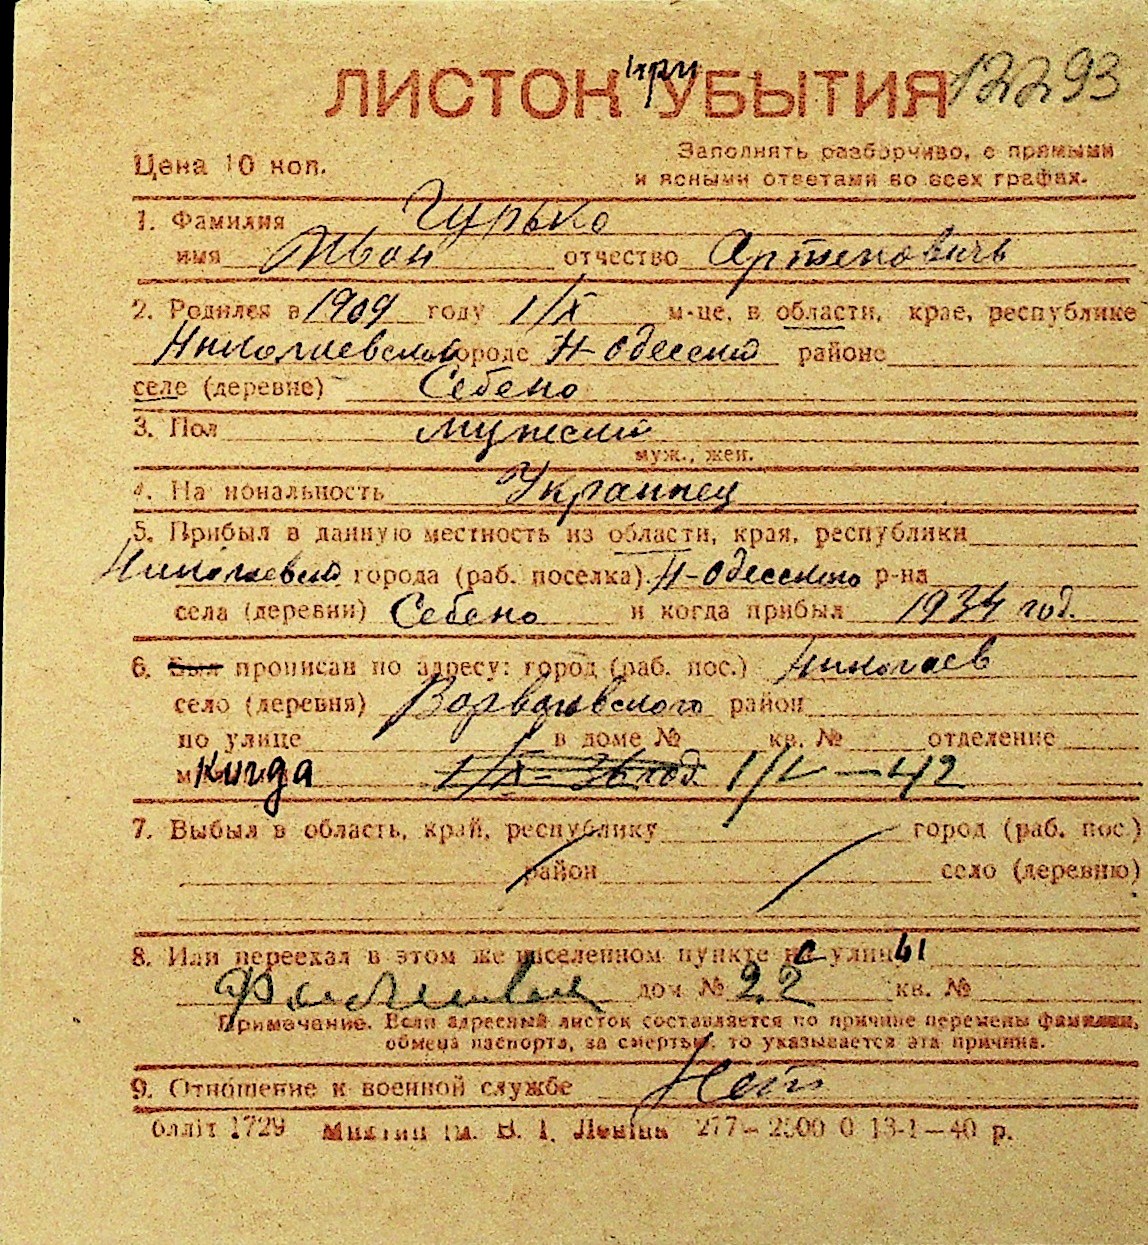 ЛИСТОК при УБЫТИЯ 12293
Цена 10 коп.
Заполнять разборчиво, с прямыми
и ясными ответами во всех графах.
1. Фамилия Гурько
имя Иван отчество Артемовичь
2. Родился в 1909 году 1/X м-це, в области, крае, республике
Николаевской городе Н-Одесский районе
селе (деревне) Себено
3. Пол мужской
муж., жен.
4. Национальность Украинец
5. Прибыл в данную местность из области, края, республики
Николаевской города (раб. поселка) Н-Одесского р-на
села (деревни) Себено и когда прибыл 1934 год.
6. Был прописан по адресу: город (раб. пос.) Николаев
село (деревня) Варваровского район
по улице в доме № кв. № отделение
Когда 1/IX - 36 год. 1/V - 42
7. Выбыл в область, край, республику город (раб. пос.)
район село (деревню)
8. Или переехал в этом же населенном пункте с улицы
дом № 22 кв. №
Примечание. Если адресный листок составляется по причине перемены фамилии,
обмена паспорта, за смертью, то указывается эта причина.
9. Отношение к военной службе Нет
блліт 1729 Миктип ім. В. І. Леніна 277 – 2000 0 13-1–40 р.